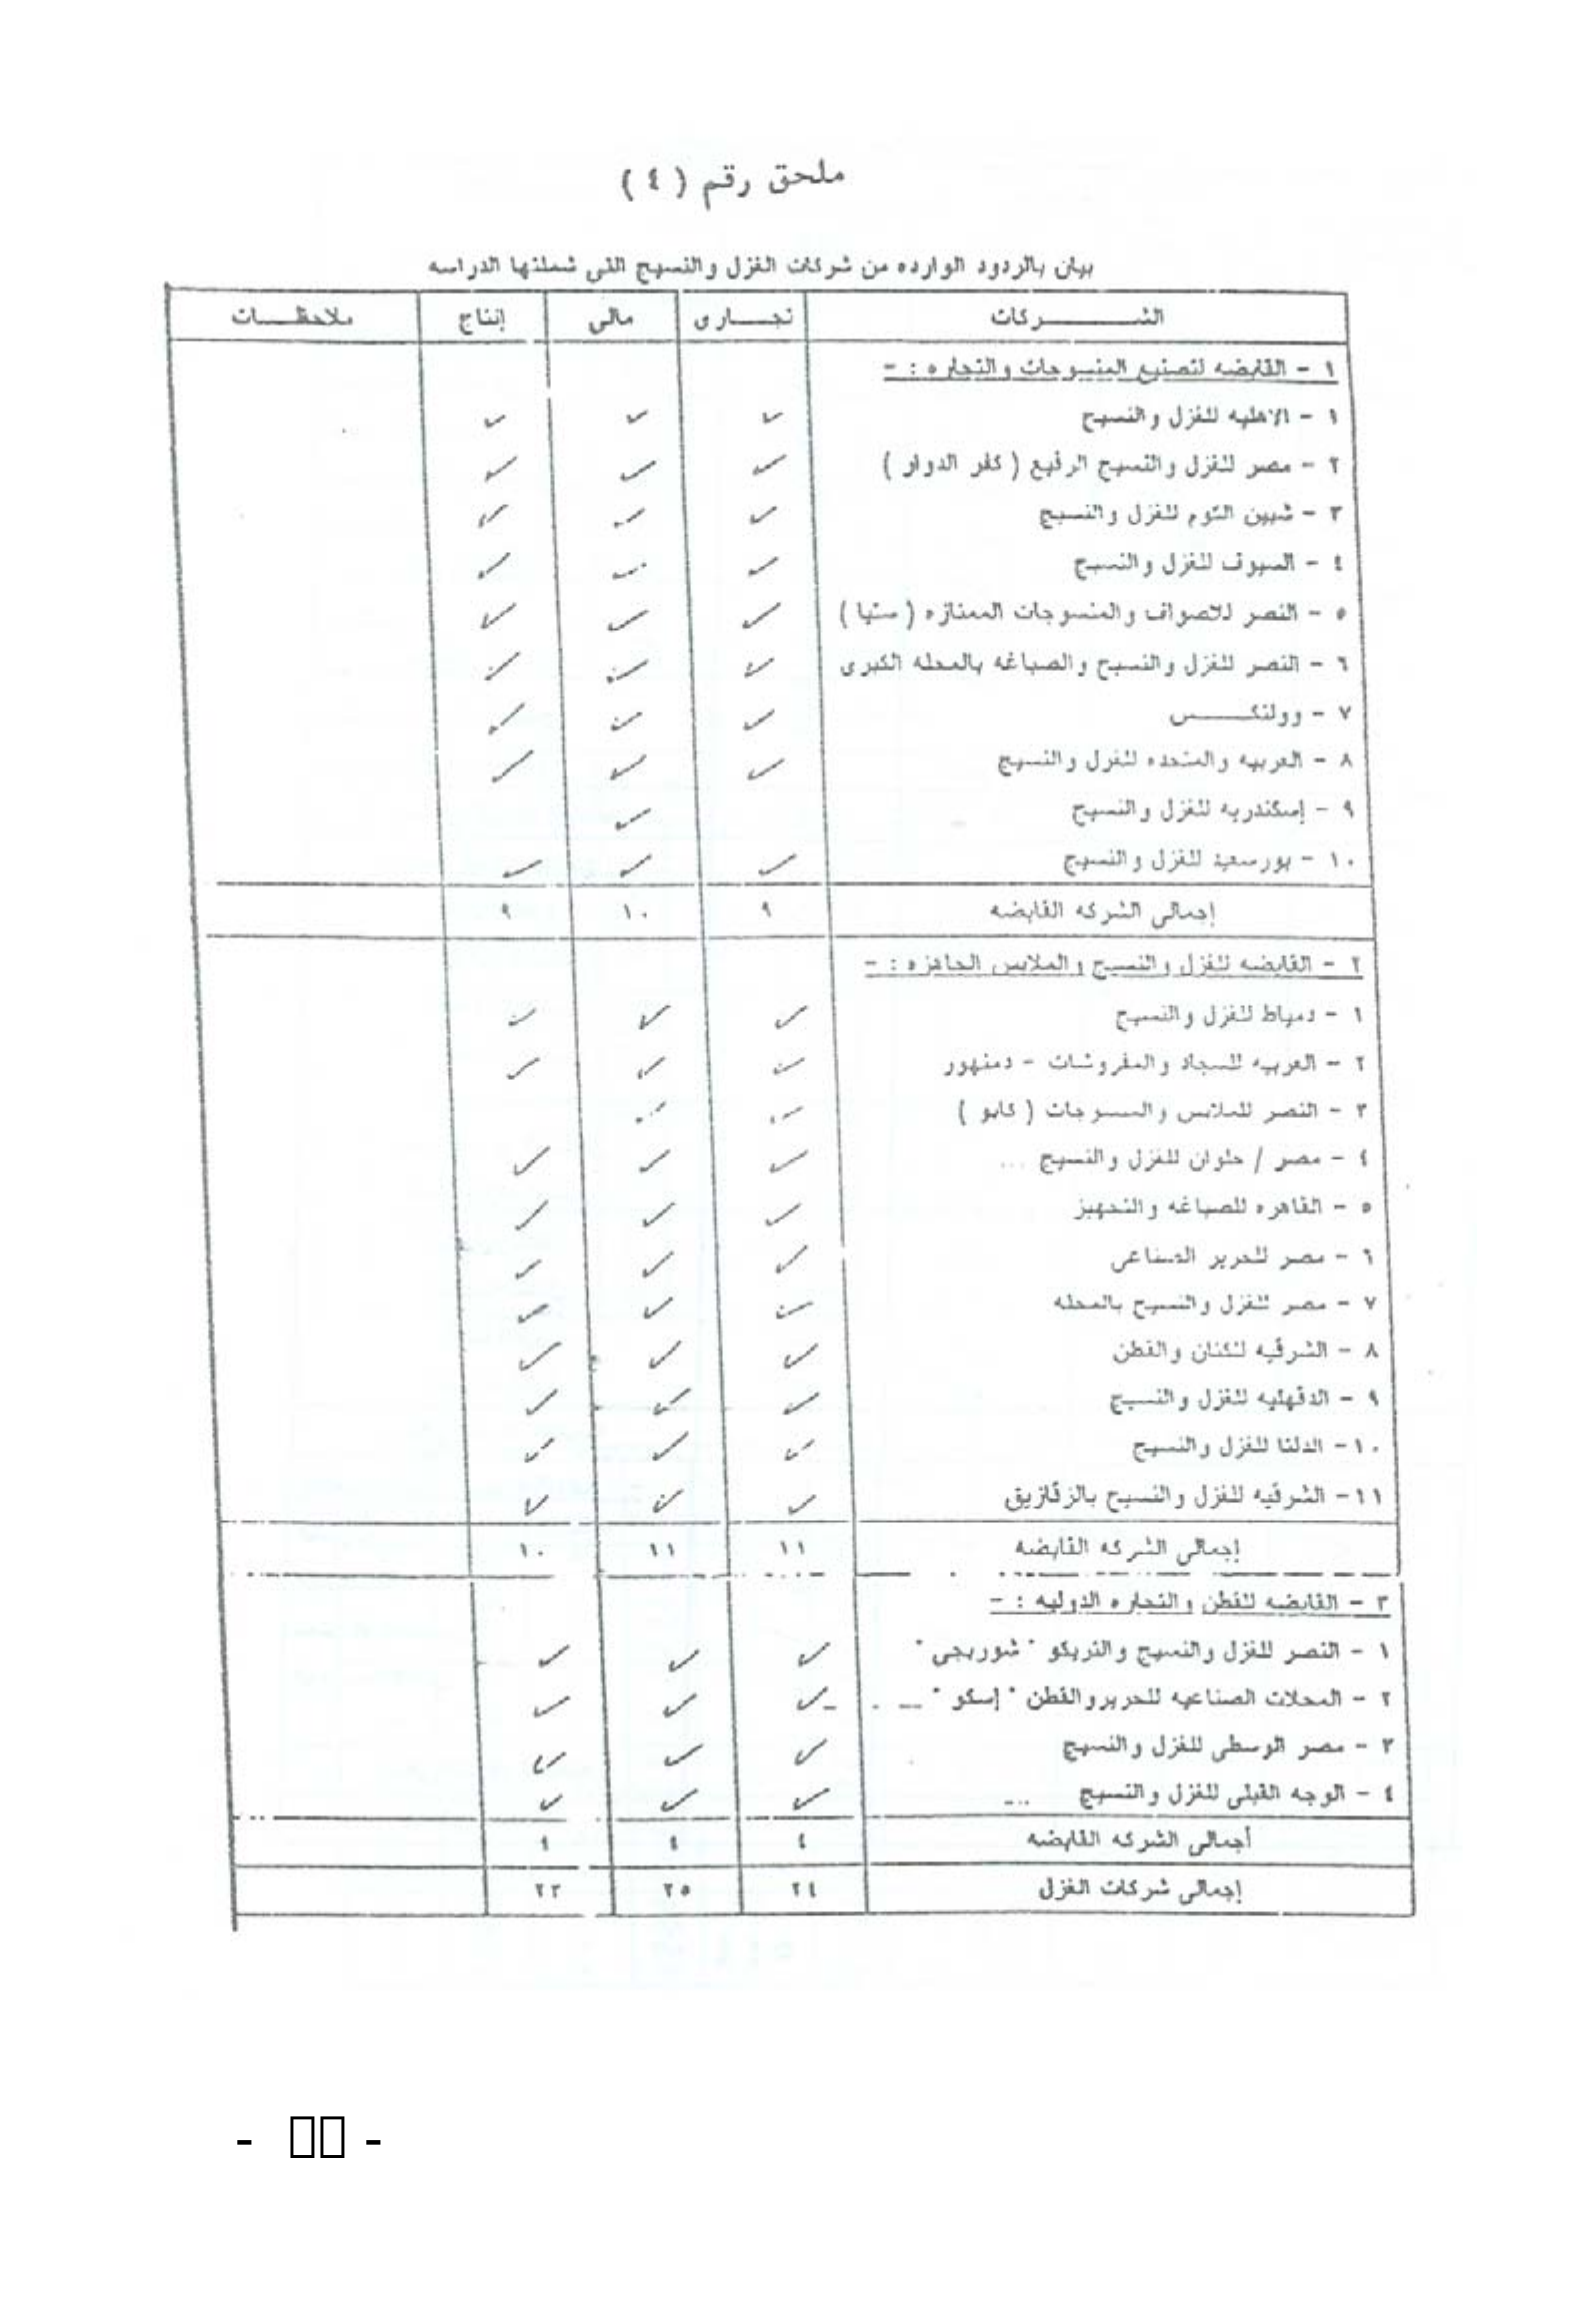 ملحق رقم ( ٤ )
بيان بالردود الوارده من شركات الغزل والنسيج التى شملتها الدراسه
الشـــــــركات تجـــارى مالى إنتاج ملاحظـــات
١ - القابضه لتصنيع المنسوجات والتجاره : -
١ - الاهليه للغزل والنسيج ✓ ✓ ✓
٢ - مصر للغزل والنسيج الرفيع ( كفر الدوار ) ✓ ✓ ✓
٣ - شبين الكوم للغزل والنسيج ✓ ✓ ✓
٤ - السيوف للغزل والنسيج ✓ ✓ ✓
٥ - النصر للاصواف والمنسوجات الممتازه ( ستيا ) ✓ ✓ ✓
٦ - النصر للغزل والنسيج والصباغه بالمحله الكبرى ✓ ✓ ✓
٧ - وولتكـــــس ✓ ✓ ✓
٨ - العربيه والمتحده للغزل والنسيج ✓ ✓ ✓
٩ - إسكندريه للغزل والنسيج ✓
١٠ - بورسعيد للغزل والنسيج ✓ ✓ ✓
إجمالى الشركه القابضه ٩ ١٠ ٩
٢ - القابضه للغزل والنسيج والملابس الجاهزه : -
١ - دمياط للغزل والنسيج ✓ ✓ ✓
٢ - العربيه للسجاد والمفروشات - دمنهور ✓ ✓ ✓
٣ - النصر للملابس والمنسوجات ( كابو ) ✓ ✓
٤ - مصر / حلوان للغزل والنسيج ✓ ✓ ✓
٥ - القاهره للصباغه والتجهيز ✓ ✓ ✓
٦ - مصر للحرير الصناعى ✓ ✓ ✓
٧ - مصر للغزل والنسيج بالمحله ✓ ✓ ✓
٨ - الشرقيه للكتان والقطن ✓ ✓ ✓
٩ - الدقهليه للغزل والنسيج ✓ ✓ ✓
١٠- الدلتا للغزل والنسيج ✓ ✓ ✓
١١- الشرقيه للغزل والنسيج بالزقازيق ✓ ✓ ✓
إجمالى الشركه القابضه ١١ ١١ ١٠
٣ - القابضه للقطن والتجاره الدوليه : -
١ - النصر للغزل والنسيج والتريكو " شوربجى " ✓ ✓ ✓
٢ - المحلات الصناعيه للحرير والقطن " إسكو " ✓ ✓ ✓
٣ - مصر الوسطى للغزل والنسيج ✓ ✓ ✓
٤ - الوجه القبلى للغزل والنسيج ✓ ✓ ✓
أجمالى الشركه القابضه ٤ ٤ ٤
إجمالى شركات الغزل ٢٤ ٢٥ ٢٣